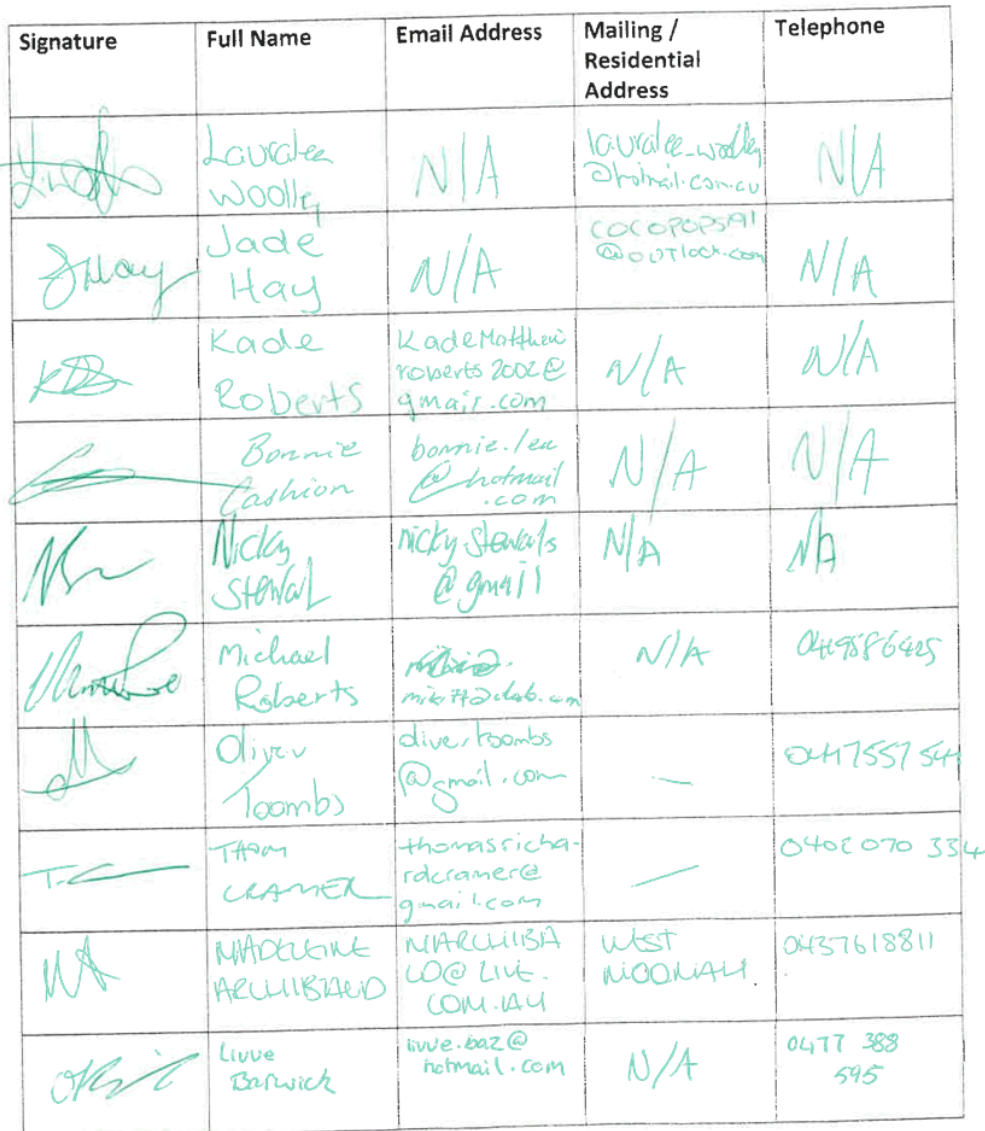 Signature Full Name Email Address Mailing / Residential Address Telephone
Lauralee Woolley N/A lauralee_woolley @hotmail.com.au N/A
Jade Hay N/A COCOPOPS191 @OUTlook.com N/A
Kade Roberts KadeMatthew roberts2002@ gmail.com N/A N/A
Bonnie Cashion bonnie.lea @hotmail .com N/A N/A
Nicky N/A N/A
Michael Roberts N/A
Oliver Toombs @gmail.com —
THOM CRAMER thomasricha- rdcramer@ gmail.com — 0402 070 334
MADELEINE ARCHIBALD MARCHIBA LD@LIVE. COM.AU WEST MOONAH 0437618811
Livve Barwick livve.baz@ hotmail.com N/A 0477 388 595